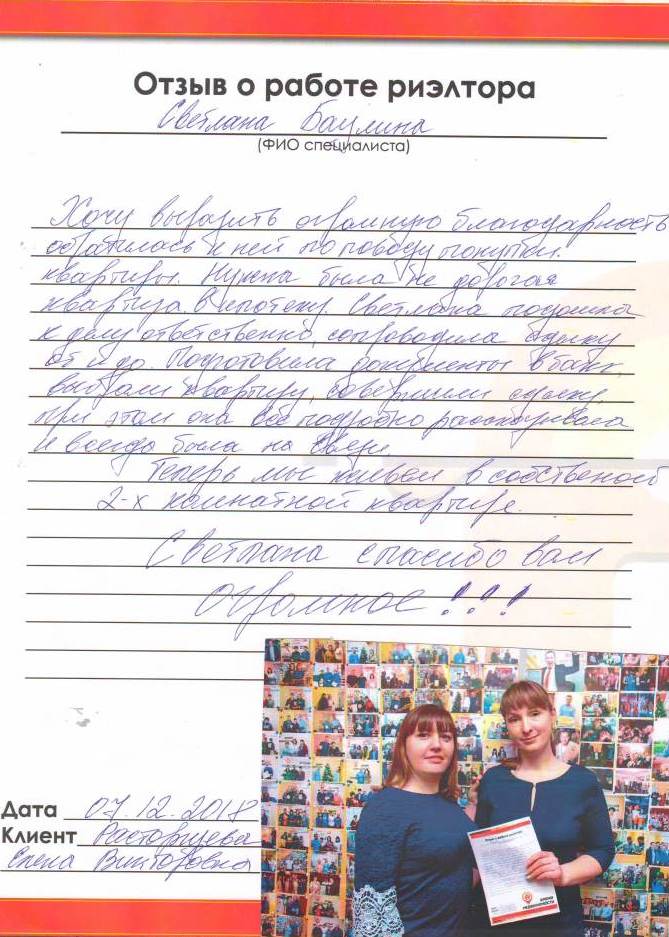 Отзыв о работе риэлтора
Светлана Баулина
(ФИО специалиста)
Хочу выразить огромную благодарность
обратилась к ней по поводу покупки
квартиры. Нужна была не дорогая
квартира в ипотеку. Светлана подошла
к делу ответственно, сопроводила сделку
от и до. Подготовила документы в банк,
выбрали квартиру, совершили сделку,
при этом она всё подробно рассказывала
и всегда была на связи.
Теперь мы живем в собственой
2-х комнатной квартире.
Светлана спасибо вам
огромное!!!
Дата 07.12.2018
Клиент Расторгуева
Елена Викторовна